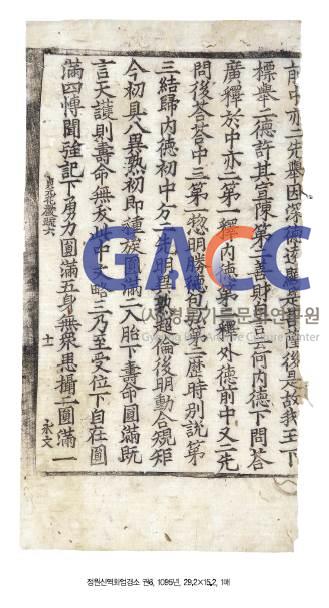 前中亦二先擧因深德述
後是故我王下
標擧二德許其宣陳第二善財言云何內德下問答
廣釋於中亦二第一釋內德第二釋外德前中又二先
問後答答中三第一惣明勝德包
第二歷時別說第
三結歸內德初中方二先明
超倫後明動合規矩
今初具八異熟初即種族圓滿二入胎下壽命圓滿既
言天護則壽命無
世中夭略二乃至受位下自在圓
滿四博聞詮記下勇力圓滿五身無衆患攝二圓滿一
貞元花嚴疏六
士
永文
GACC
(사)경북기록문화연구원
Gyeongbuk Archive Culture Center
정원신역화엄경소 권6, 1095년, 29.2×15.2, 1매